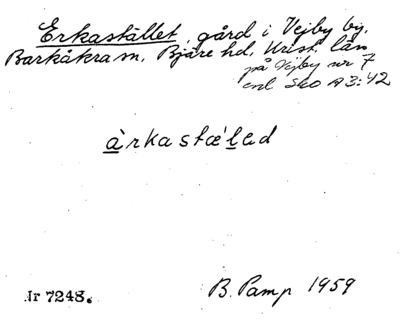 Erkastället, gård i Vejby by,
Barkåkra sn, Bjäre hd, Krist. län
på Vejby nr 7
enl SkO A3:42
àrkastæ'led
Nr 7248.
B. Pamp 1959